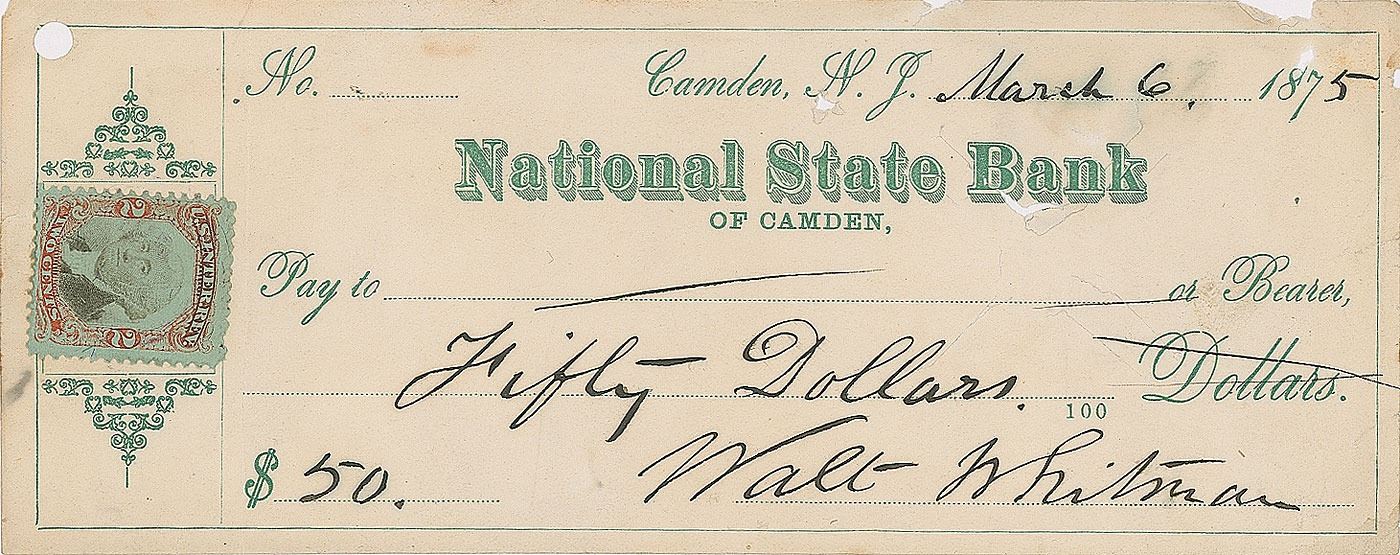 No. Camden, N. J. March 6. 1875
National State Bank
OF CAMDEN,
Pay to or Bearer,
Fifty Dollars. 100 Dollars.
$ 50. Walt Whitman
2
TWO CENTS
U.S. INTER. REV.
2